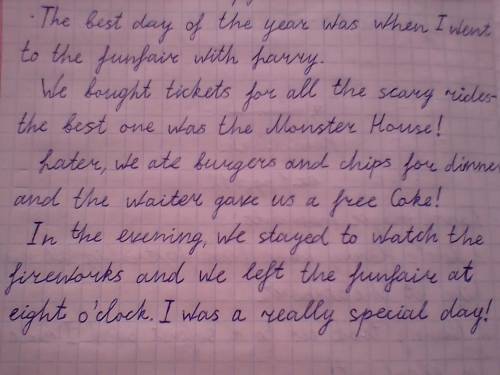 The best day of the year was when I went
to the funfair with parry.
We bought tickets for all the scary rides-
the best one was the Monster House!
Later, we ate burgers and chips for dinner
and the waiter gave us a free Coke!
In the evening, we stayed to watch the
fireworks and we left the funfair at
eight o'clock. I was a really special day!